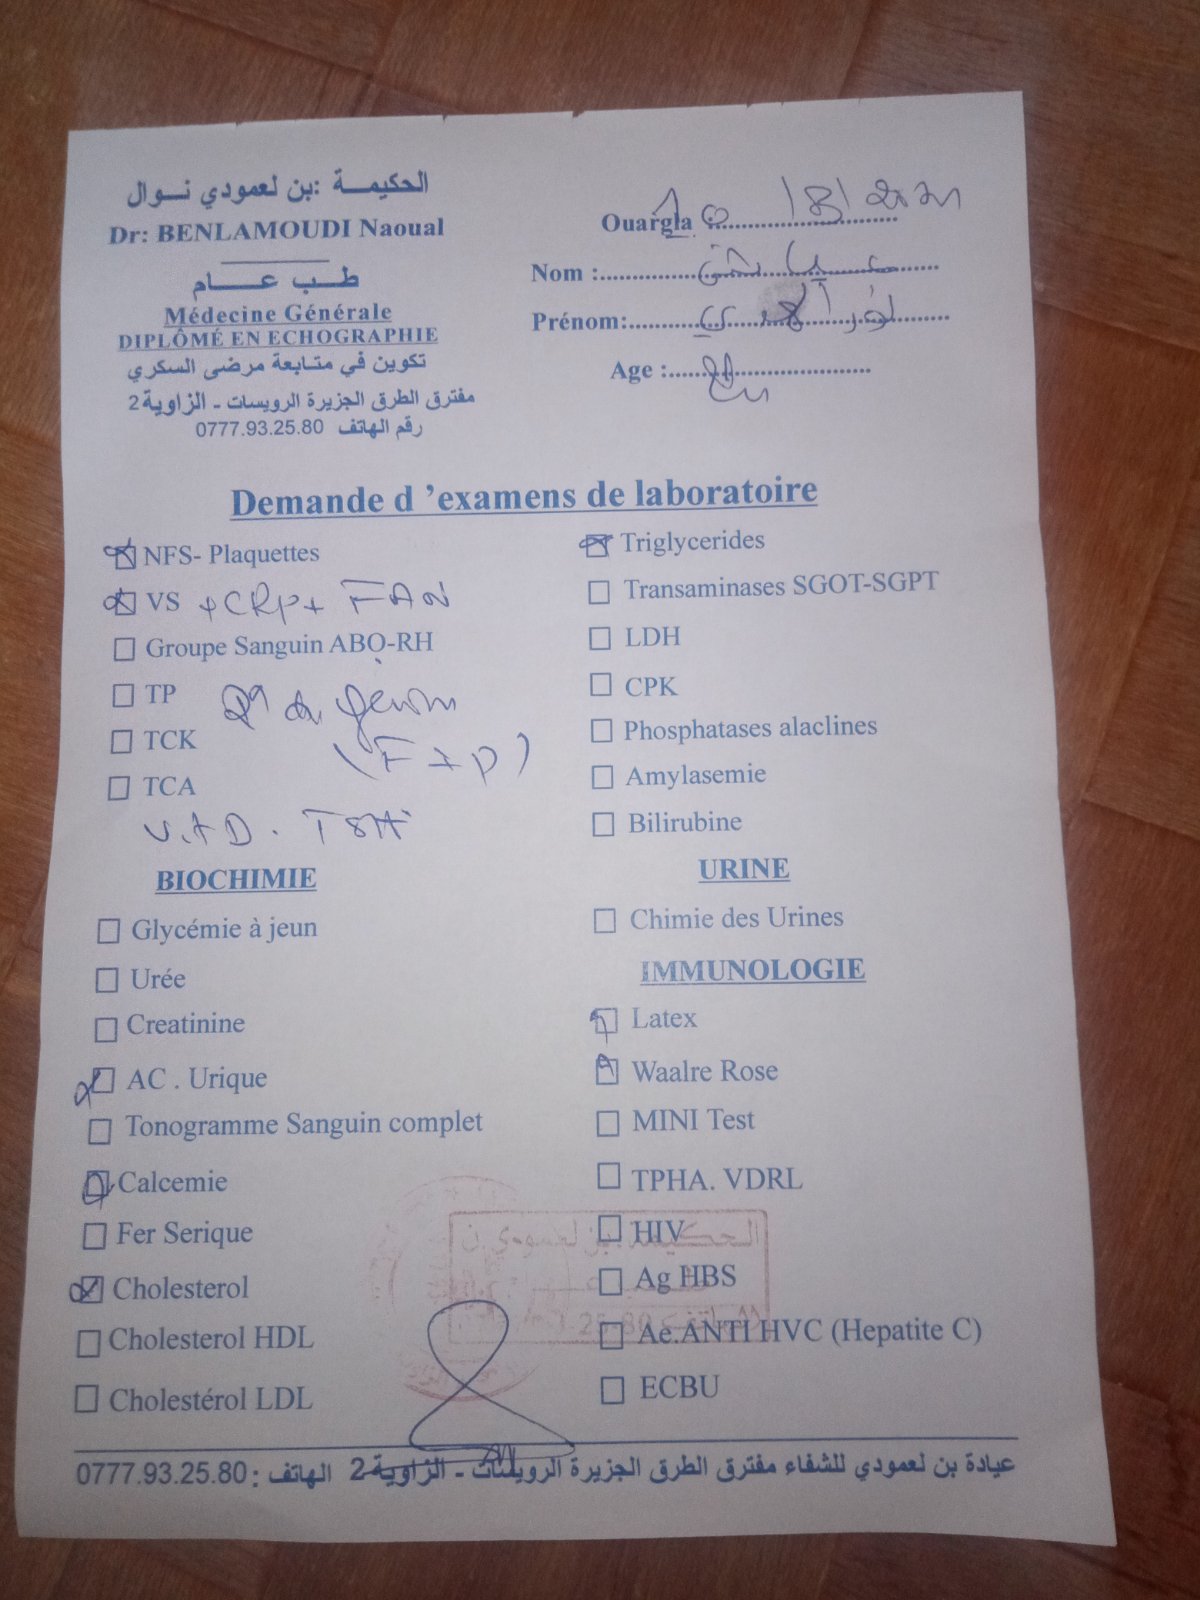 الحكيمة :بن لعمودي نوال
Dr: BENLAMOUDI Naoual
طب عام
Médecine Générale
DIPLÔMÉ EN ECHOGRAPHIE
تكوين في متابعة مرضى السكري
مفترق الطرق الجزيرة الرويسات - الزاوية 2
رقم الهاتف 0777.93.25.80
Ouargla
Nom :
Prénom:
Age :
Demande d ’examens de laboratoire
NFS- Plaquettes
VS + CRP + FAN
Groupe Sanguin ABO-RH
TP
TCK
TCA
BIOCHIMIE
Glycémie à jeun
Urée
Creatinine
AC . Urique
Tonogramme Sanguin complet
Calcemie
Fer Serique
Cholesterol
Cholesterol HDL
Cholestérol LDL
Triglycerides
Transaminases SGOT-SGPT
LDH
CPK
Phosphatases alaclines
Amylasemie
Bilirubine
URINE
Chimie des Urines
IMMUNOLOGIE
Latex
Waalre Rose
MINI Test
TPHA. VDRL
HIV
Ag HBS
Ae.ANTI HVC (Hepatite C)
ECBU
عيادة بن لعمودي للشفاء مفترق الطرق الجزيرة الرويسات - الزاوية 2 الهاتف : 0777.93.25.80